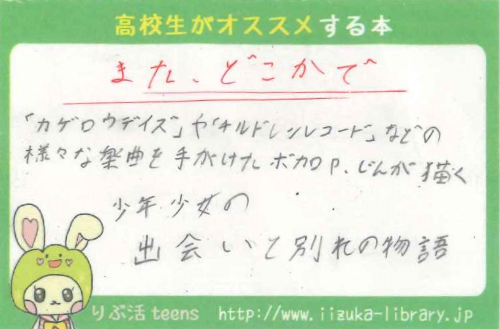 高校生がオススメする本
また、どこかで
「カゲロウデイズ」や「チルドレンレコード」などの
様々な楽曲を手がけたボカロP、じんが描く
少年少女の
出会いと別れの物語
りぶ活teens http://www.iizuka-library.jp